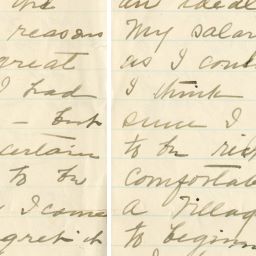 the
reasons
great
I had
- but
certain
to be
I come
egret it
an ideal
My salar
as I coul
I think
since I
to be rich
comfortabl
a villag
to beginn